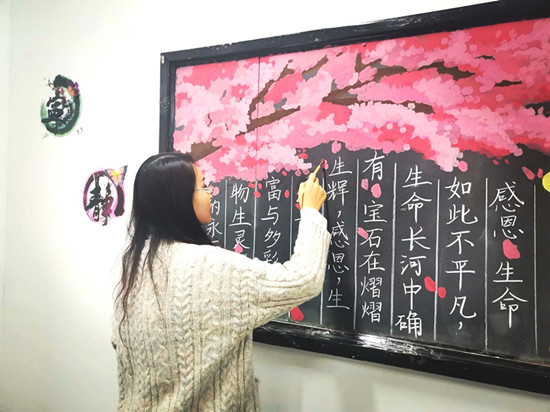 感恩生命
如此不平凡，
生命长河中确
有宝石在熠熠
生辉，感恩，生
富与多彩
物生灵
的永
静